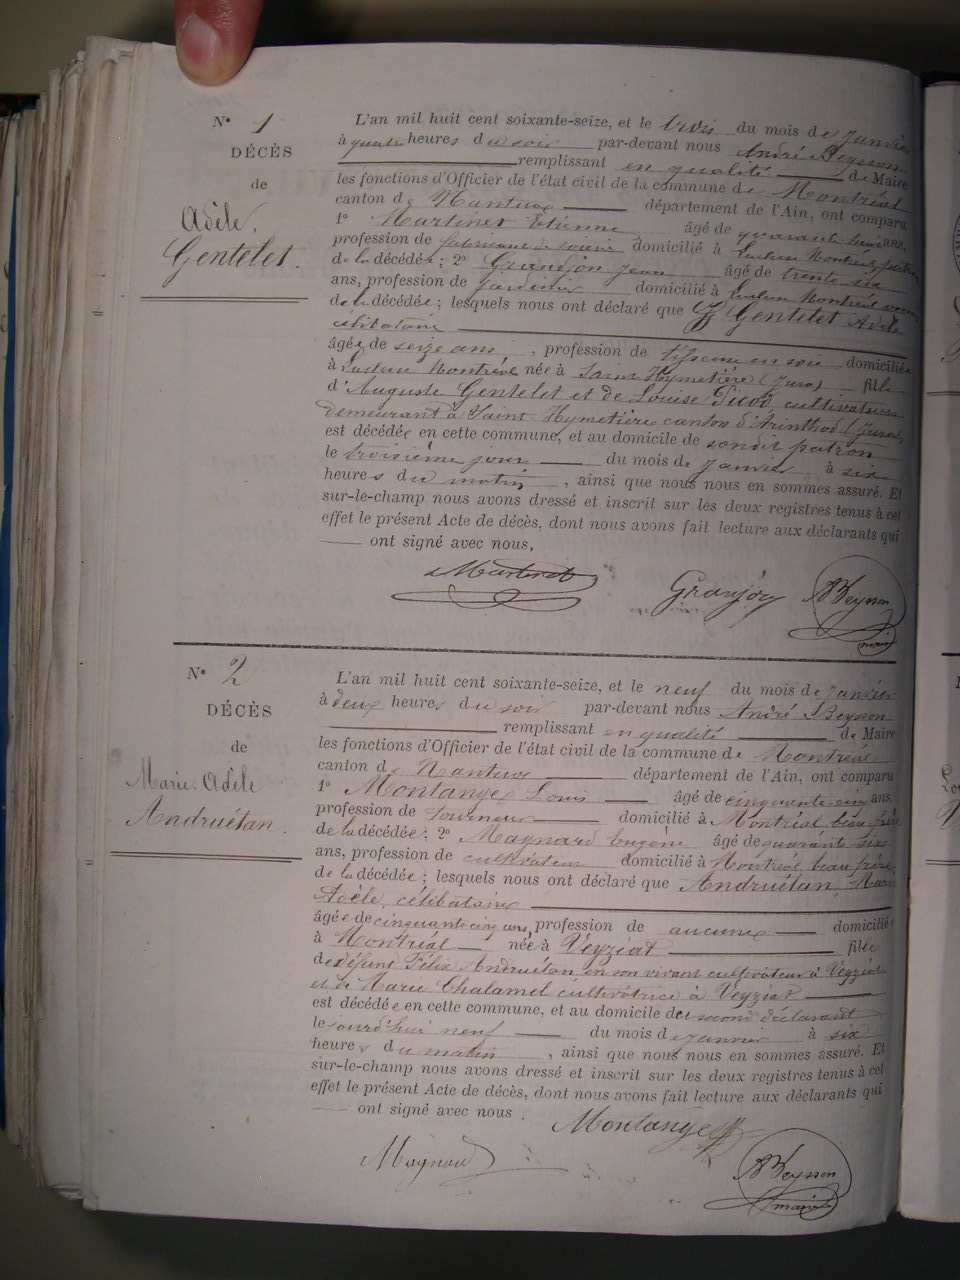 N° 1
DÉCÈS
de
Adèle
Gentelet.
L'an mil huit cent soixante-seize, et le trois du mois de Janvier
à quatre heures du soir par-devant nous André Beysson
remplissant en qualité de Maire
les fonctions d'Officier de l'état civil de la commune de Montréal
canton de Nantua département de l'Ain, ont comparu
1° Martinet Etienne âgé de quarante ans,
profession de fabricant de soierie domicilié à Montréal patron
de la décédée; 2° Grandjon Jean âgé de trente six
ans, profession de jardinier domicilié à Montréal
de la décédée; lesquels nous ont déclaré que Gentelet Adèle
célibataire
âgée de seize ans, profession de tisseuse en soie domiciliée
à Montréal née à Saint Hymetière (Jura) fille
d'Auguste Gentelet et de Louise Picod, cultivateurs
demeurant à Saint Hymetière canton d'Arinthod (Jura),
est décédée en cette commune, et au domicile de son dit patron
le troisième jour du mois de Janvier à six
heures du matin, ainsi que nous nous en sommes assuré. Et
sur-le-champ nous avons dressé et inscrit sur les deux registres tenus à cet
effet le présent Acte de décès, dont nous avons fait lecture aux déclarants qui
ont signé avec nous,
Martinet Granjon ABeysson
maire
N° 2
DÉCÈS
de
Marie Adèle
Andruétan.
L'an mil huit cent soixante-seize, et le neuf du mois de Janvier
à deux heures du soir par-devant nous André Beysson
remplissant en qualité de Maire
les fonctions d'Officier de l'état civil de la commune de Montréal
canton de Nantua département de l'Ain, ont comparu
1° Montange Louis âgé de cinquante cinq ans,
profession de tourneur domicilié à Montréal beau frère
de la décédée; 2° Maynard Eugène âgé de quarante six
ans, profession de cultivateur domicilié à Montréal beau frère
de la décédée; lesquels nous ont déclaré que Andruétan, Marie
Adèle, célibataire
âgée de cinquante cinq ans, profession de aucune domiciliée
à Montréal née à Veyziat fille
de défunt Félix Andruétan en son vivant cultivateur à Veyziat
et de Marie Chalamel cultivatrice à Veyziat
est décédée en cette commune, et au domicile du second déclarant
le jourd'hui neuf du mois de Janvier à six
heures du matin, ainsi que nous nous en sommes assuré. Et
sur-le-champ nous avons dressé et inscrit sur les deux registres tenus à cet
effet le présent Acte de décès, dont nous avons fait lecture aux déclarants qui
ont signé avec nous.
Montange
Maynard ABeysson
maire